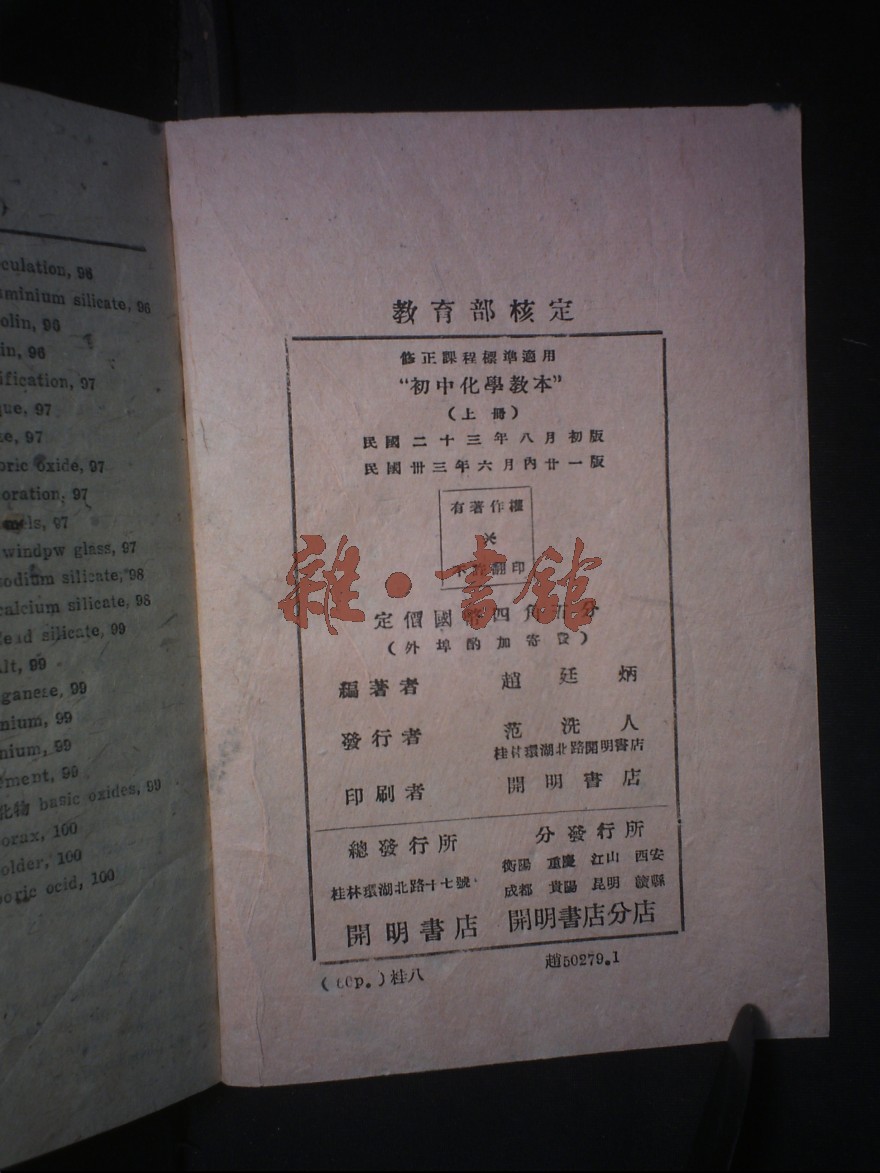 )
culation, 96
uminium silicate, 96
olin, 96
in, 96
ification, 97
que, 97
te, 97
oric oxide, 97
oration, 97
mels, 97
windpw glass, 97
sodium silicate, 98
calcium silicate, 98
lead silicate, 99
alt, 99
ganese, 99
nium, 99
nium, 99
ement, 99
化物 basic oxides, 99
orax, 100
older, 100
boric ocid, 100
教育部核定
修正課程標準適用
“初中化學教本”
(上冊)
民國二十三年八月初版
民國卅三年六月內廿一版
有著作權
不許翻印
雜·書館
定價國幣四角五分
(外埠酌加寄費)
編著者 趙廷炳
發行者 范洗人
桂林環湖北路開明書店
印刷者 開明書店
總發行所
桂林環湖北路十七號
開明書店
分發行所
衡陽 重慶 江山 西安
成都 貴陽 昆明 贛縣
開明書店分店
趙50279.1